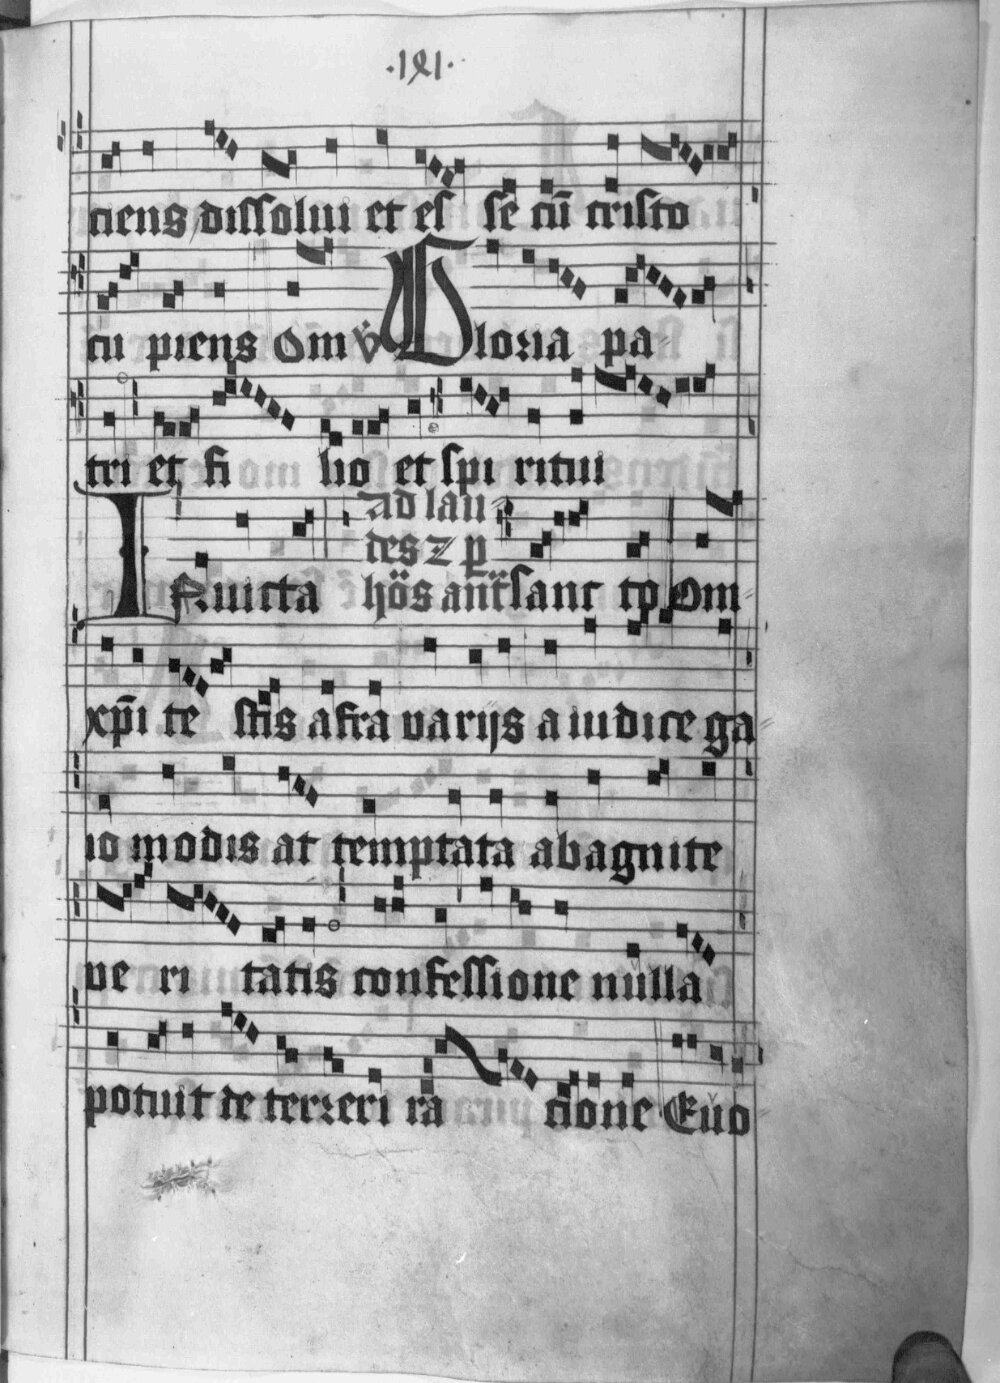 ·191·
ciens dissolui et es se cū cristo
cu piens Om v̇ Gloria pa
tri et fi lio et spi ritui
Ad lau
des z p̱
INuicta hōs ant̄ sanc to Om
xp̄i te stis afra varijs a iudice ga
io modis at temptata abagnite
ve ri tatis confessione nulla
potuit de terreri ra cione Euo